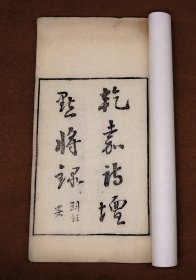 乾嘉詩壇
點將錄